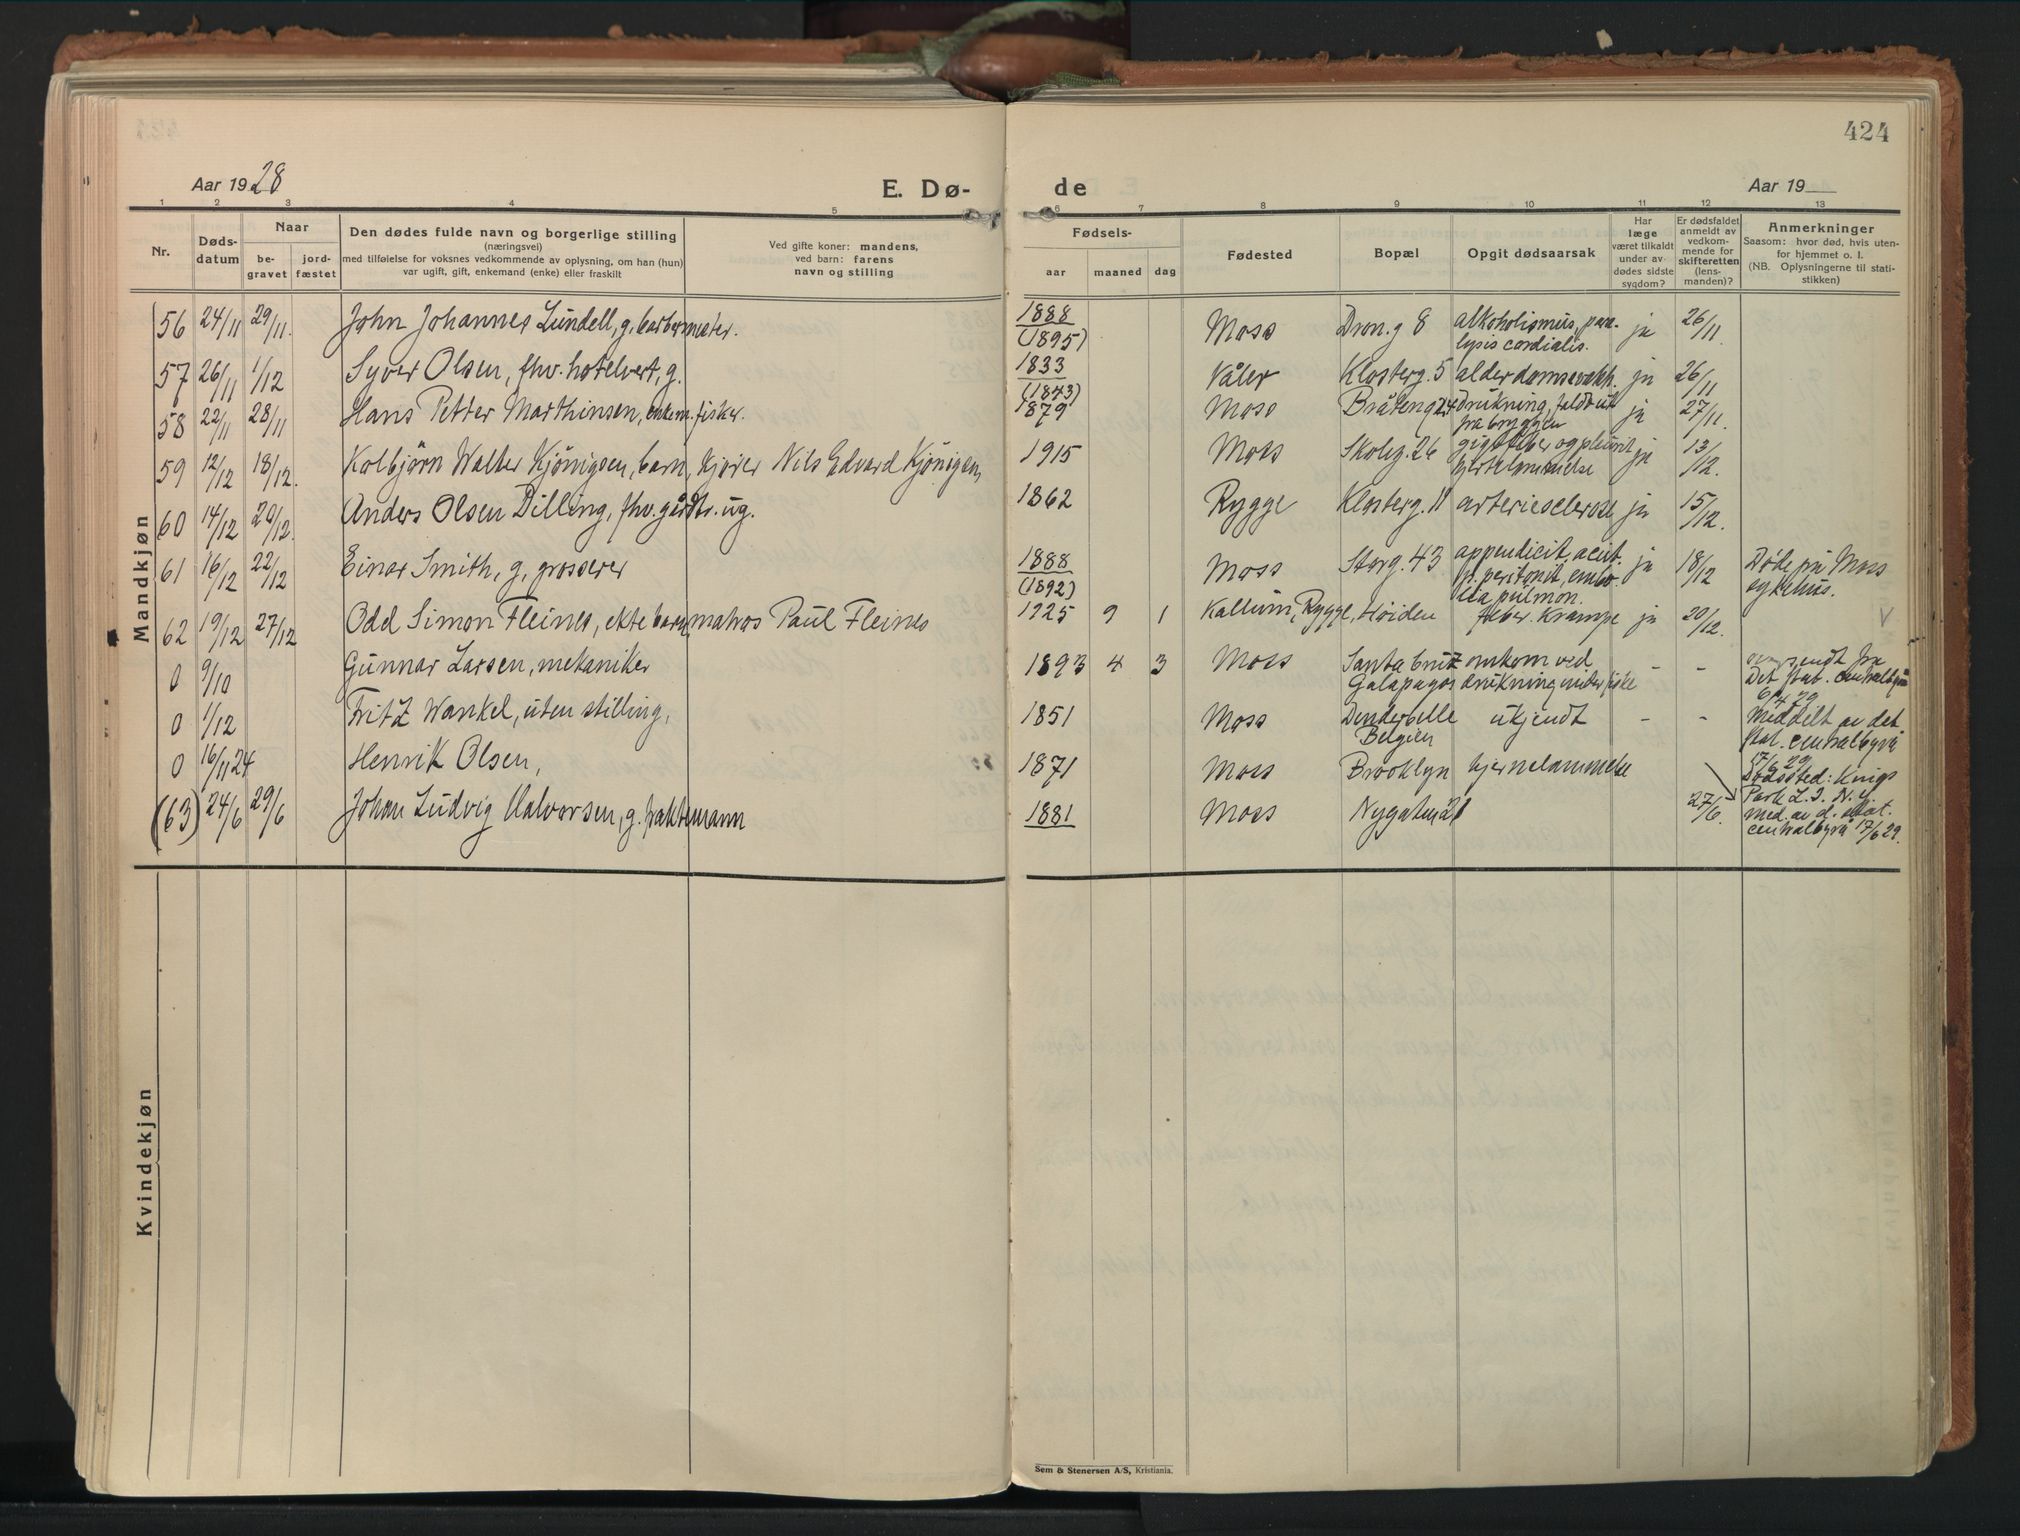 424
Aar 1928
E. Dø-
de
Aar 19
1 2 3 4 5 6 7 8 9 10 11 12 13
Nr.
Døds-
datum
Naar
be-
gravet
jord-
fæstet
Den dødes fulde navn og borgerlige stilling
(næringsvei)
med tilføielse for voksnes vedkommende av oplysning, om han (hun)
var ugift, gift, enkemand (enke) eller fraskilt
Ved gifte koner: mandens,
ved barn: farens
navn og stilling
Fødsels-
aar maaned dag
Fødested
Bopæl
Opgit dødsaarsak
Har
læge
været tilkaldt
under av-
dødes sidste
sygdom?
Er dødsfaldet
anmeldt av
vedkom-
mende for
skifteretten
(lens-
manden)?
Anmerkninger
Saasom: hvor død, hvis uten-
for hjemmet o. l.
(NB. Oplysningerne til stati-
stikken)
Mandkjøn
56 24/11 29/11. John Johannes Lundell, g. barbermester. 1888 (1895) Moss Dron.g 8 alkoholismus, para-
lysis cordialis. ja 26/11
57 26/11 1/12 Syver Olsen, fhv. hotelvert, g. 1833 (1843) Våler Klosterg. 5 alderdomssvakh. ja 26/11
58 22/11 28/11 Hans Petter Marthinsen, enkem. fisker. 1879 Moss Bråteng 24 drukning, faldt ut
fra bryggen ja 27/11.
59 12/12 18/12. Kolbjørn Walter Kjønigsen, barn, kjører Nils Edvard Kjønigsen, 1915 Moss Skoleg. 26 gigtfeber og pleurit
hjertelammelse ja 13/12.
60 14/12 20/12. Anders Olsen Dilling, fhv. gårdbr. ug. 1862 Rygge Klosterg. 11 arteriesclerose ja 15/12.
61 16/12 22/12 Einar Smith, g, grosserer 1888 (1892) Moss Storg. 43 appendicit, acut.
p. peritonit, embo-
lia pulmon. ja 18/12 Døde på Moss
sykehus.
62 19/12 27/12 Odd Simon Fleines, ekte barn, matros Paul Fleines 1925 9 1 Kallum, Rygge, Høiden feber. Krampe ja 20/12.
0 9/10 Gunnar Larsen, mekaniker 1893 4 3 Moss Santa Cruz
Galapagos omkom ved
drukning under fiske - - sendt fra
Det stat. centralbyrå
6/4 29
0 1/12 Fritz Wankel, uten stilling, 1851 Moss Denderbelle
Belgien ukjendt - - Meddelt av det
stat. centralbyrå
17/6 29
0 16/11 24 Henrik Olsen, 1871 Moss Brooklyn hjernelammelse Dødssted: Kings
Park L. I. N. Y
med. av d. stat.
centralbyrå 17/6 29.
(63) 24/6 29/6 Johan Ludvig Halvorsen, g. fraktemann 1881 Moss Nygaten 21 27/6.
Kvindekjøn
Sem & Stenersen A/S, Kristiania.